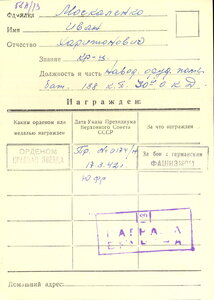 Фамилия Москаленко
Имя Иван
Отчество Харитонович
Звание кр-ц.
Должность и часть Навод. оруд. полк.
бат. 188 к.п. 30 о К Д
Награжден:
Каким орденом или медалью награжден
Дата Указа Президиума Верховного Совета СССР
За что награжден
ОРДЕНОМ
КРАСНАЯ ЗВЕЗДА
Пр. № 0174/н
17.3.42г.
Ю фр
За бои с германским
ФАШИЗМОМ
Домашний адрес: